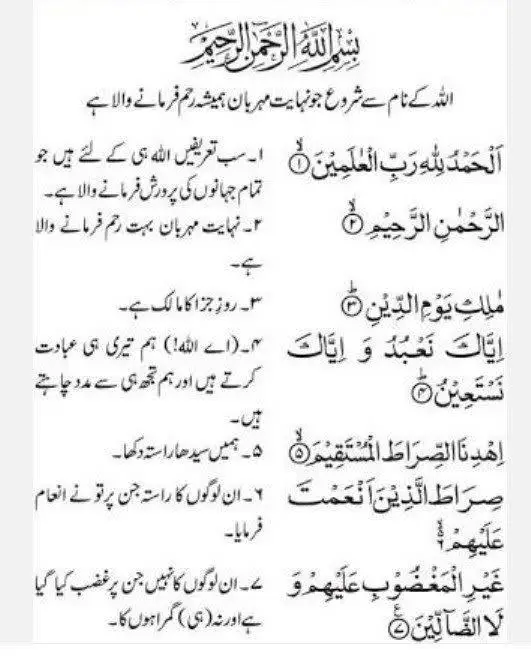 بِسْمِ اللّٰهِ الرَّحْمٰنِ الرَّحِيْمِ
اللہ کے نام سے شروع جو نہایت مہربان ہمیشہ رحم فرمانے والا ہے
اَلْحَمْدُ لِلّٰهِ رَبِّ الْعٰلَمِيْنَ ۙ﴿۱﴾
۱۔ سب تعریفیں اللہ ہی کے لئے ہیں جو
تمام جہانوں کی پرورش فرمانے والا ہے۔
الرَّحْمٰنِ الرَّحِيْمِ ۙ﴿۲﴾
۲۔ نہایت مہربان بہت رحم فرمانے والا
ہے۔
مٰلِكِ يَوْمِ الدِّيْنِ ؕ﴿۳﴾
۳۔ روزِ جزا کا مالک ہے۔
اِيَّاكَ نَعْبُدُ وَ اِيَّاكَ
نَسْتَعِيْنُ ؕ﴿۴﴾
۴۔ (اے اللہ!) ہم تیری ہی عبادت
کرتے ہیں اور ہم تجھ ہی سے مدد چاہتے
ہیں۔
اِهْدِنَا الصِّرَاطَ الْمُسْتَقِيْمَ ۙ﴿۵﴾
۵۔ ہمیں سیدھا راستہ دکھا۔
صِرَاطَ الَّذِيْنَ اَنْعَمْتَ
عَلَيْهِمْ ۙ۬۶
۶۔ ان لوگوں کا راستہ جن پر تو نے انعام
فرمایا۔
غَيْرِ الْمَغْضُوْبِ عَلَيْهِمْ وَ
لَا الضَّآلِّيْنَ ﴿۷﴾ ع
۷۔ ان لوگوں کا نہیں جن پر غضب کیا گیا
ہے اور نہ (ہی) گمراہوں کا۔